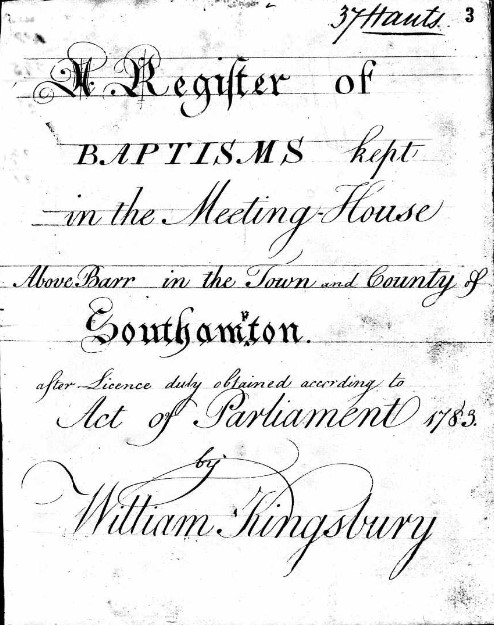 37 Hants. 3
A Register of
BAPTISMS kept
in the Meeting-House
Above Barr in the Town and County of
Southamton.
after Licence duly obtained according to
Act of Parliament 1783.
by
William Kingsbury